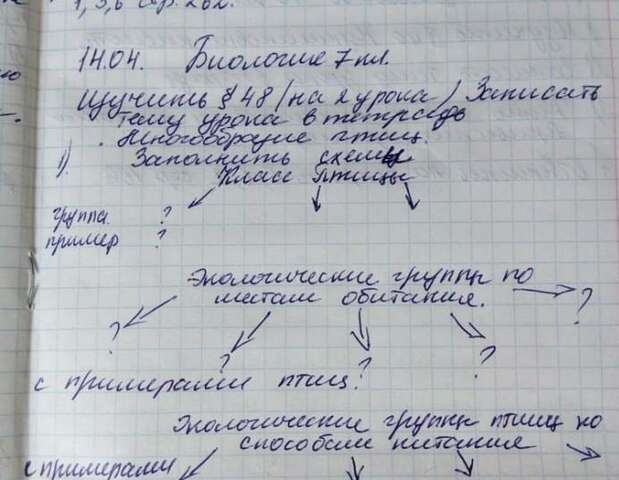 1, 3, 6 стр. 262.
14.04. Биология 7 кл.
Изучить § 48 (на 2 урока) Записать
тему урока в тетрадь
. Многообразие птиц.
1). Заполнить схемы
Класс Птицы
группа ?
пример ?
Экологические группы по
местам обитания.
?
? ? ? ?
с примерами птиц.
Экологические группы птиц по
способам питания
с примерами